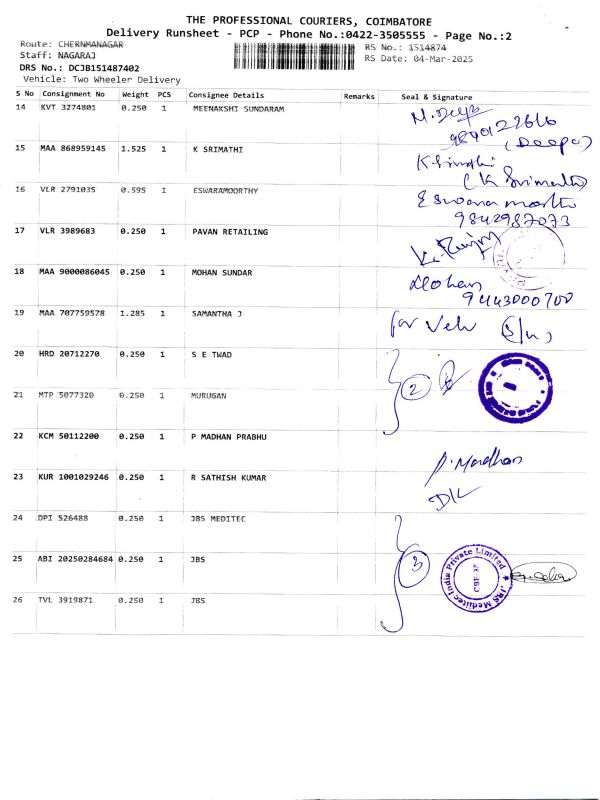 THE PROFESSIONAL COURIERS, COIMBATORE
Delivery Runsheet - PCP - Phone No.:0422-3505555 - Page No.:2
Route: CHERNMANAGAR
RS No.: 1514874
Staff: NAGARAJ
RS Date: 04-Mar-2025
DRS No.: DCJB151487402
Vehicle: Two Wheeler Delivery
S No Consignment No Weight PCS Consignee Details Remarks Seal & Signature
14 KVT 3274801 0.250 1 MEENAKSHI SUNDARAM
(Deepa)
15 MAA 868959145 1.525 1 K SRIMATHI
K Srimathi
(K Srimathi)
16 VLR 2791035 0.595 1 ESWARAMOORTHY
Eswara moorthy
9842987073
17 VLR 3989683 0.250 1 PAVAN RETAILING
18 MAA 9000086045 0.250 1 MOHAN SUNDAR
Mohan
9443000700
19 MAA 707759578 1.285 1 SAMANTHA J
for
20 HRD 20712270 0.250 1 S E TWAD
2
21 MTP 5077320 0.250 1 MURUGAN
22 KCM 50112200 0.250 1 P MADHAN PRABHU
P. Madhan
23 KUR 1001029246 0.250 1 R SATHISH KUMAR
24 DPI 526488 0.250 1 JBS MEDITEC
25 ABI 20250284684 0.250 1 JBS
3
JBS Meditec India Private Limited
CBE-35
26 TVL 3919871 0.250 1 JBS